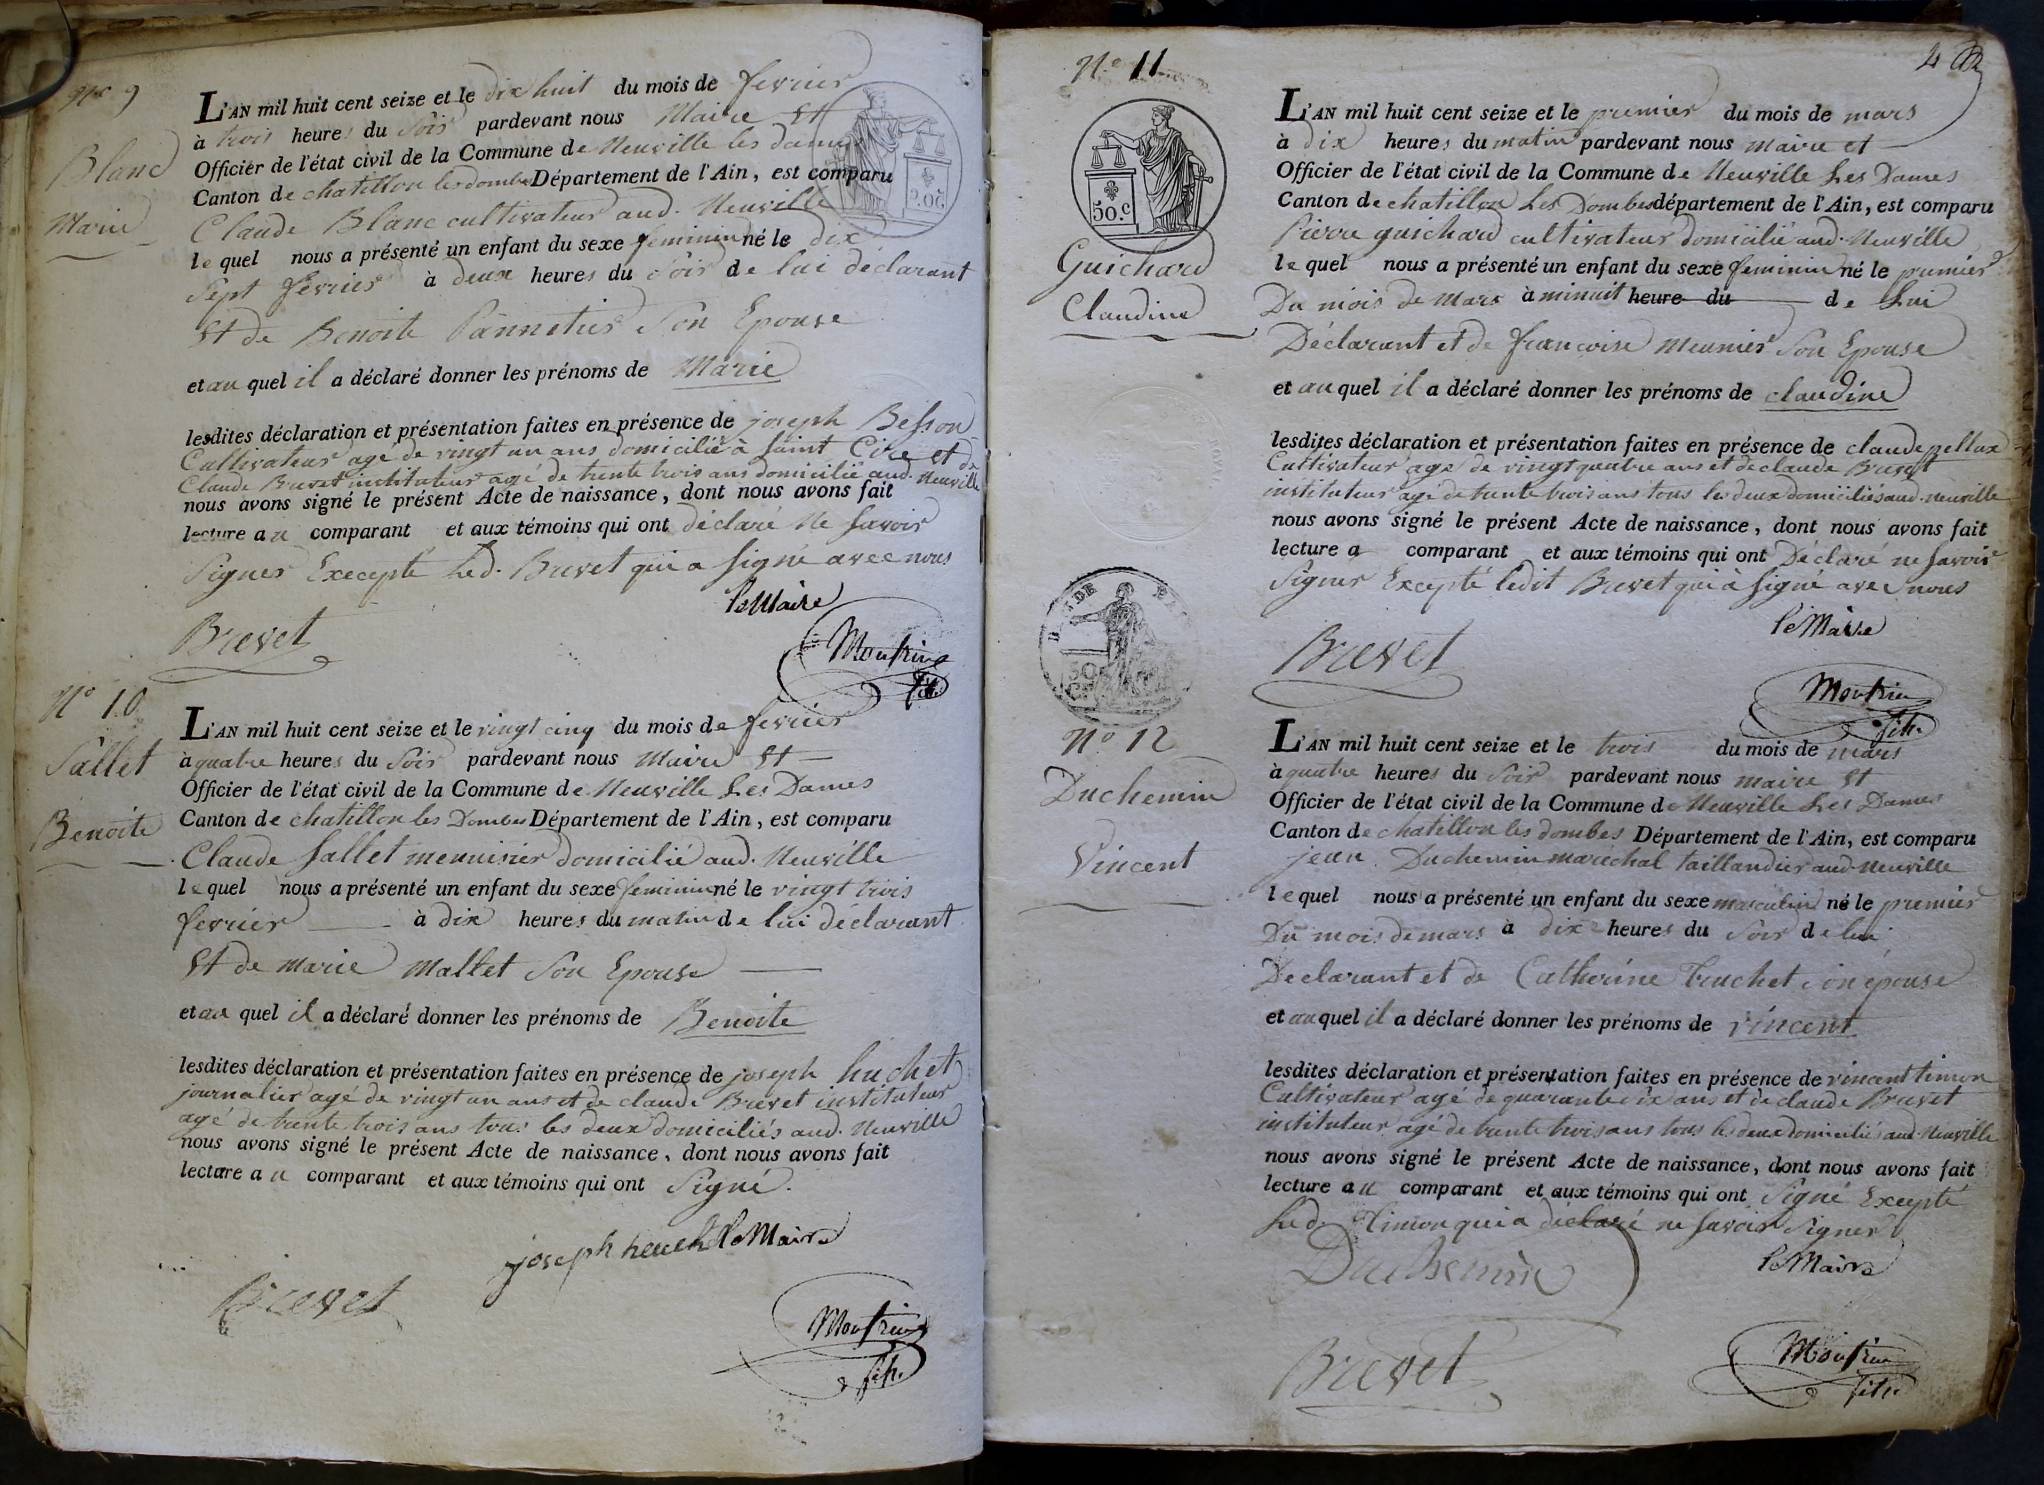 N.o 9
Blanc
Marie
L'AN mil huit cent seize et le dix huit du mois de fevrier
à trois heures du soir pardevant nous Maire Et
Officier de l'état civil de la Commune de Neuville les dames
Canton de chatillon les dombes Département de l'Ain, est comparu
Claude Blanc cultivateur aud. Neuville
lequel nous a présenté un enfant du sexe feminin né le dix
Sept fevrier à deux heures du soir de lui déclarant
Et de Benoite Pannetier Son Epouse
et au quel il a déclaré donner les prénoms de Marie
lesdites déclaration et présentation faites en présence de joseph Besson
Cultivateur agé de vingt un ans domicilié à saint Cire et de
Claude Brevet instituteur agé de trente trois ans domicilié aud. Neuville
nous avons signé le présent Acte de naissance, dont nous avons fait
lecture au comparant et aux témoins qui ont déclaré Ne Savoir
Signer Excepté Led. Brevet qui a signé avec nous
le Maire
Brevet
Montrin
fils
N.o 10
Sallet
Benoite
L'AN mil huit cent seize et le vingt cinq du mois de fevrier
à quatre heures du Soir pardevant nous Maire Et
Officier de l'état civil de la Commune de Neuville Les Dames
Canton de chatillon les Dombes Département de l'Ain, est comparu
Claude Sallet menuisier domicilié aud. Neuville
lequel nous a présenté un enfant du sexe feminin né le vingt trois
fevrier à dix heures du matin de lui déclarant
Et de marie Mallet Son Epouse
et au quel il a déclaré donner les prénoms de Benoite
lesdites déclaration et présentation faites en présence de joseph huchet
journalier agé de vingt un ans et de claude Brevet instituteur
agé de trente trois ans tous les deux domiciliés aud. Neuville
nous avons signé le présent Acte de naissance, dont nous avons fait
lecture au comparant et aux témoins qui ont Signé.
joseph le Maire
Brevet
Montrin
fils
4
N.o 11
50.c
Guichard
Claudine
L'AN mil huit cent seize et le premier du mois de mars
à dix heures du matin pardevant nous maire et
Officier de l'état civil de la Commune de Neuville Les Dames
Canton de chatillon Les Dombes département de l'Ain, est comparu
Pierre guichard cultivateur domicilié aud. Neuville
lequel nous a présenté un enfant du sexe feminin né le premier
Du mois de Mars à minuit heure du de Lui
Déclarant et de francoise Meunier Son Epouse
et au quel il a déclaré donner les prénoms de claudine
lesdites déclaration et présentation faites en présence de claude pelloux
Cultivateur agé de vingt quatre ans et de claude Brevet
instituteur agé de trente trois ans tous les deux domiciliés aud. neuville
nous avons signé le présent Acte de naissance, dont nous avons fait
lecture a comparant et aux témoins qui ont Déclaré ne Savoir
Signer Excepté ledit Brevet qui à signé avec nous
le Maire
Brevet
Montrin
fils
N.o 12
Duchemin
Vincent
L'AN mil huit cent seize et le trois du mois de mars
à quatre heures du Soir pardevant nous maire Et
Officier de l'état civil de la Commune de Neuville Les Dames
Canton de chatillon les dombes Département de l'Ain, est comparu
jean Duchemin maréchal taillandier aud. Neuville
lequel nous a présenté un enfant du sexe masculin né le premier
Du mois de mars à dix heures du Soir de lui
Declarant et de Catherine truchet son épouse
et au quel il a déclaré donner les prénoms de vincent
lesdites déclaration et présentation faites en présence de vincent timon
Cultivateur agé de quarante six ans et de claude Brevet
instituteur agé de trente trois ans tous les deux domiciliés aud. Neuville
nous avons signé le présent Acte de naissance, dont nous avons fait
lecture au comparant et aux témoins qui ont Signé Excepté
Led. Timon qui a déclaré ne savoir Signer
Duchemin
le Maire
Brevet
Montrin
fils